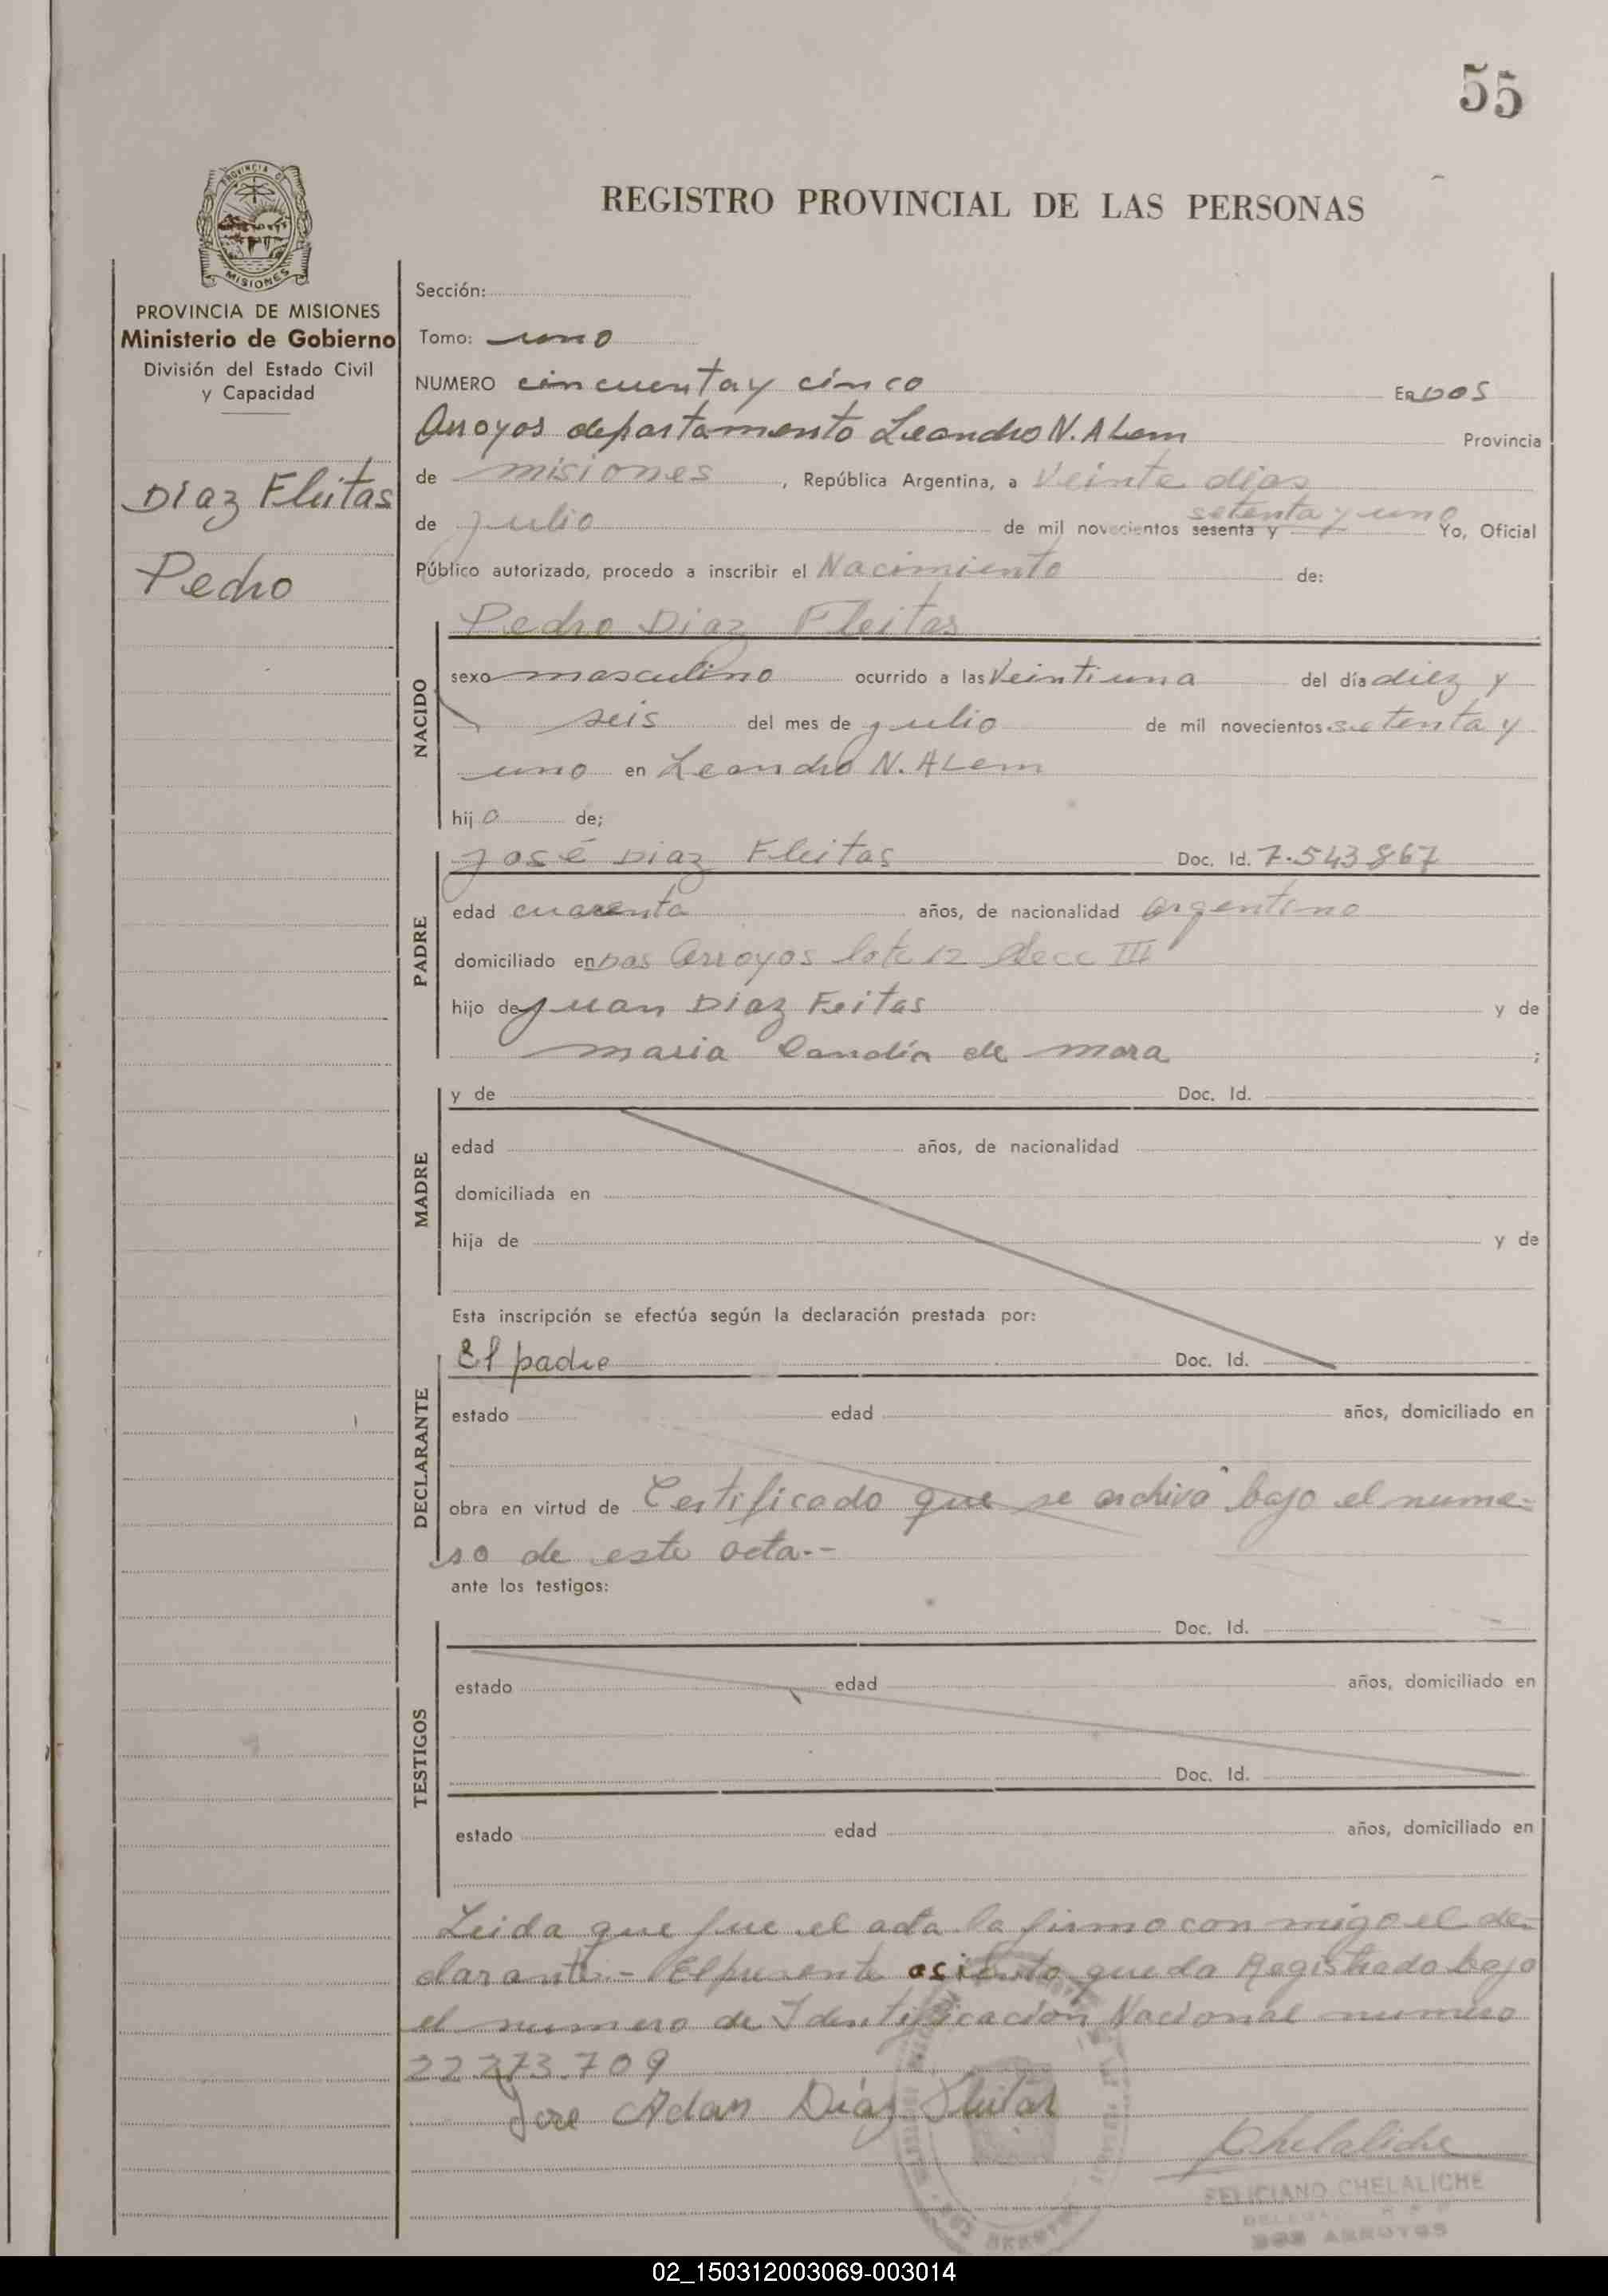 55
PROVINCIA DE
MISIONES
REGISTRO PROVINCIAL DE LAS PERSONAS
PROVINCIA DE MISIONES
Ministerio de Gobierno
División del Estado Civil
y Capacidad
Diaz Fleitas
Pedro
Sección:
Tomo: uno
NUMERO cincuenta y cinco En DOS
Arroyos departamento Leandro N. ALem Provincia
de misiones, República Argentina, a Veinte dias
de julio de mil novecientos sesenta y setenta y uno Yo, Oficial
Público autorizado, procedo a inscribir el Nacimiento de:
Pedro Diaz Fleitas
NACIDO
sexo masculino ocurrido a las Veintiuna del día diez y
seis del mes de julio de mil novecientos setenta y
uno en Leandro N. ALem
hijo de;
PADRE
José Diaz Fleitas Doc. Id. 7.543867
edad cuarenta años, de nacionalidad argentino
domiciliado en Dos Arroyos lote 12 Secc III
hijo de Juan Diaz Feitas y de
maria Candia de mora ;
MADRE
y de Doc. Id.
edad años, de nacionalidad
domiciliada en
hija de y de
Esta inscripción se efectúa según la declaración prestada por:
DECLARANTE
El padre Doc. Id.
estado edad años, domiciliado en
obra en virtud de Certificado que se archiva bajo el nume-
ro de este acta.-
ante los testigos:
TESTIGOS
Doc. Id.
estado edad años, domiciliado en
Doc. Id.
estado edad años, domiciliado en
Leida que fue el acta la firma con migo el de-
clarante.- El presente asiento queda Registrado bajo
el numero de Identificación Nacional numero
22273.709
Jose Adan Díaz Fleitas
Chelaliche
FELICIANO CHELALICHE
DOS ARROYOS
02_150312003069-003014